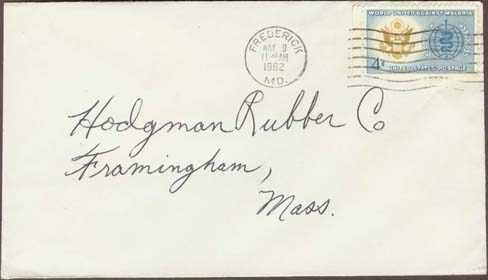 FREDERICK
MAY 9
11 AM
1962
MD.
WORLD UNITED AGAINST MALARIA
4¢
UNITED STATES POSTAGE
Hodgman Rubber Co
Framingham,
Mass.